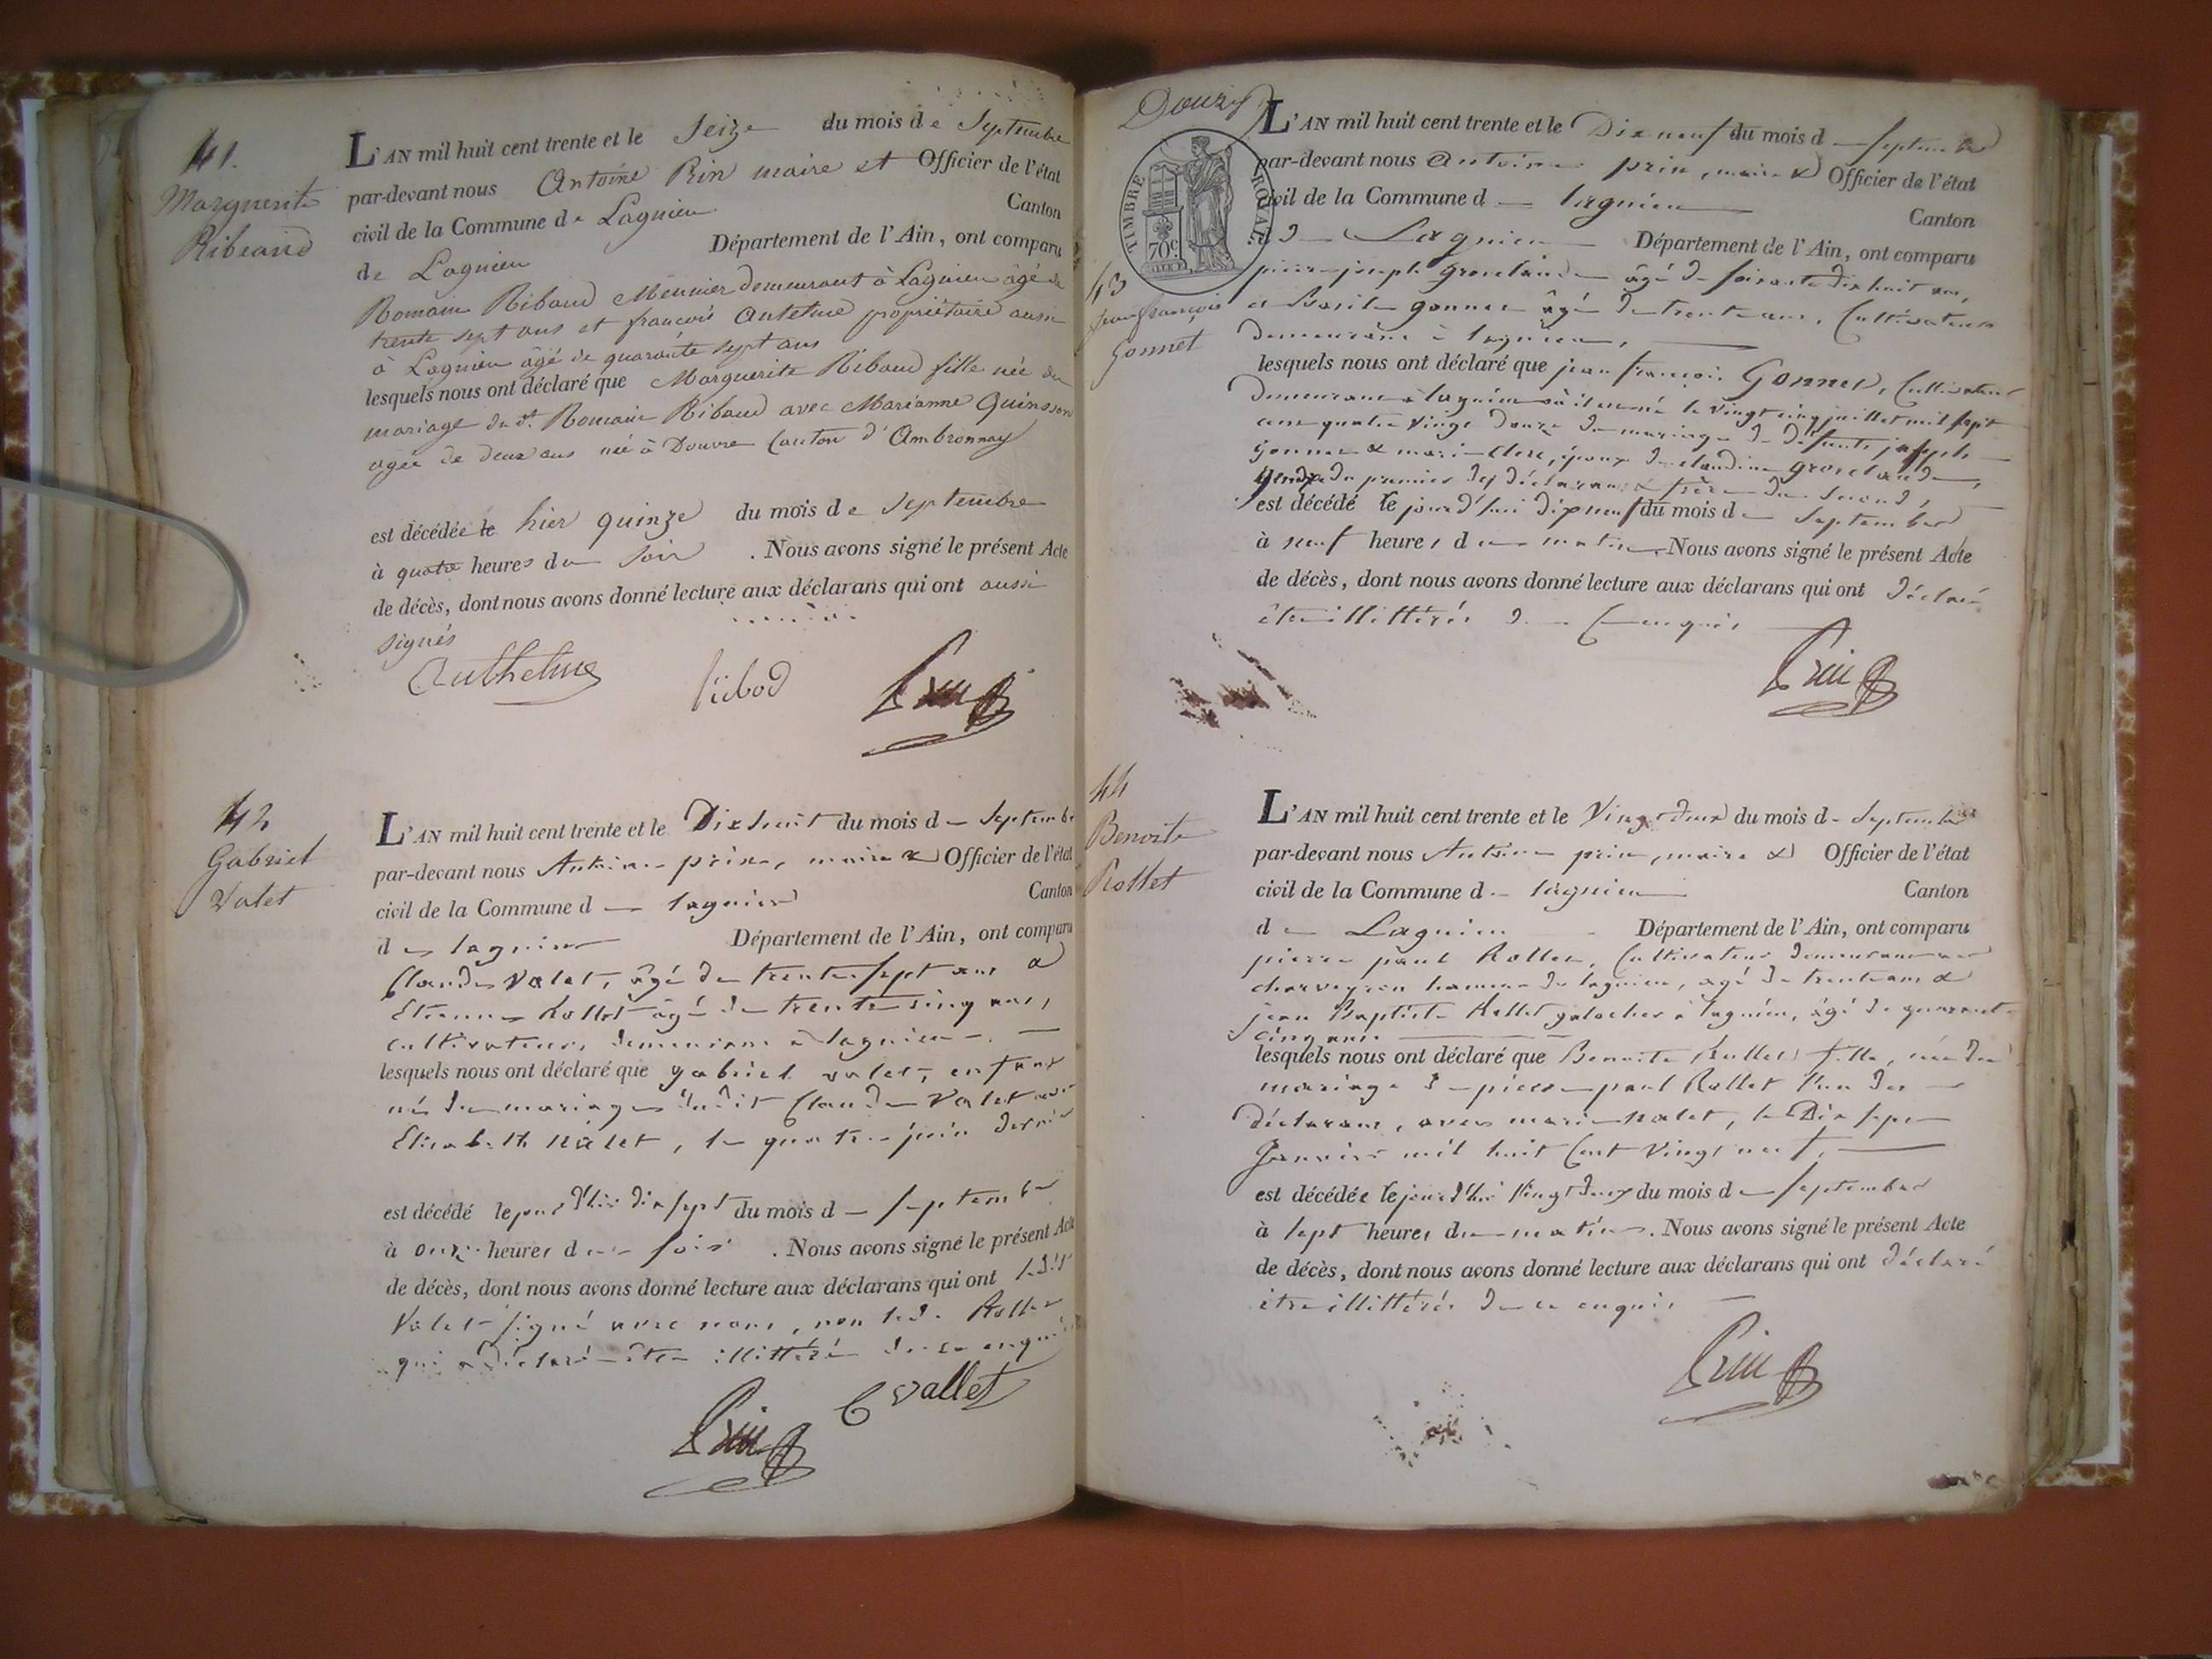 41.
Marguerite
Ribeaud
L'AN mil huit cent trente et le Seize du mois de Septembre
par-devant nous Antoine Prin maire et Officier de l'état
civil de la Commune de Lagnieu Canton
de Lagnieu Département de l'Ain, ont comparu
Romain Ribaud Meunier demeurant à Lagnieu âgé de
trente sept ans et françois Antelme propriétaire aussi
à Lagnieu âgé de quarante sept ans
lesquels nous ont déclaré que Marguerite Ribaud fille née du
mariage du dt. Romain Ribaud avec Marianne Quinsson
agée de deux ans née à Douvre Canton d'Ambronnay
est décédée le hier quinze du mois de Septembre
à quatre heures du soir . Nous avons signé le présent Acte
de décès, dont nous avons donné lecture aux déclarans qui ont aussi
signés
Anthelme ribod Prin
42
Gabriel
Valet
L'AN mil huit cent trente et le Dix huit du mois de Septembre
par-devant nous Antoine prin, maire & Officier de l'état
civil de la Commune de lagnieu Canton
de lagnieu Département de l'Ain, ont comparu
Claude Valet, âgé de trente sept ans &
Etienne Rollet âgé de trente cinq ans,
cultivateurs, demeurant à lagnieu,
lesquels nous ont déclaré que gabriel valet, enfant
né du mariage dudit Claude Valet avec
Elisabeth valet, le quatre juin dernier
est décédé le jour d'hier dix sept du mois de septembre
à onze heures du soir . Nous avons signé le présent Acte
de décès, dont nous avons donné lecture aux déclarans qui ont ledit
Valet signé avec nous, non led. Rollet
qui a déclaré être illittéré de ce enquis
Prin C vallet
Douze
TIMBRE ROYAL
70c.
43
Jean françois
Gonnet
L'AN mil huit cent trente et le Dix neuf du mois de septembre
par-devant nous Antoine prin, maire & Officier de l'état
civil de la Commune de lagnieu Canton
de Lagnieu Département de l'Ain, ont comparu
pierre joseph grosclaude âgé de soixante dix huit ans,
et Basile gonnet âgé de trente ans, Cultivateurs
demeurans à lagnieu,
lesquels nous ont déclaré que jean françois Gonnet, Cultivateur
demeurant à lagnieu où il est né le vingt cinq juillet mil sept
cent quatre vingt douze du mariage de défunts joseph
gonnet & marie Clere, époux de claudine grosclaude,
gendre du premier des déclarans & frère du second,
est décédé le jourd'hui dix neuf du mois de Septembre
à neuf heures du matin. Nous avons signé le présent Acte
de décès, dont nous avons donné lecture aux déclarans qui ont déclaré
être illittérés de ce enquis
Prin
44
Benoite
Rollet
L'AN mil huit cent trente et le Vingt deux du mois de Septembre
par-devant nous Antoine prin, maire & Officier de l'état
civil de la Commune de lagnieu Canton
de Lagnieu Département de l'Ain, ont comparu
pierre paul Rollet, Cultivateur demeurant au
charveyron hameau de lagnieu, agé de trente ans &
jean Baptiste Rollet galocher à lagnieu, âgé de quarante
cinq ans.
lesquels nous ont déclaré que Benoite Rollet fille, née du
mariage de pierre paul Rollet l'un des
déclarans, avec marie valet, le Dix sept
Janvier mil huit Cent vingt neuf,
est décédée le jourd'hui vingt deux du mois de septembre
à sept heures du matin. Nous avons signé le présent Acte
de décès, dont nous avons donné lecture aux déclarans qui ont déclaré
être illittérés de ce enquis
Prin